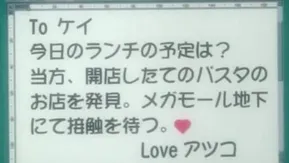 To ケイ
今日のランチの予定は？
当方、開店したてのパスタの
お店を発見。メガモール地下
にて接触を待つ。
Love アツコ